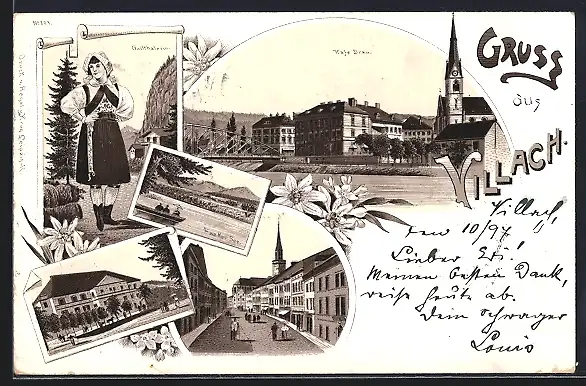 Gailthalerin.
GRUSS
aus
VILLACH.
Villach,
den 10/97
Lieber
Meinen besten Dank,
reise heute ab.
Dein Schwager
Louis